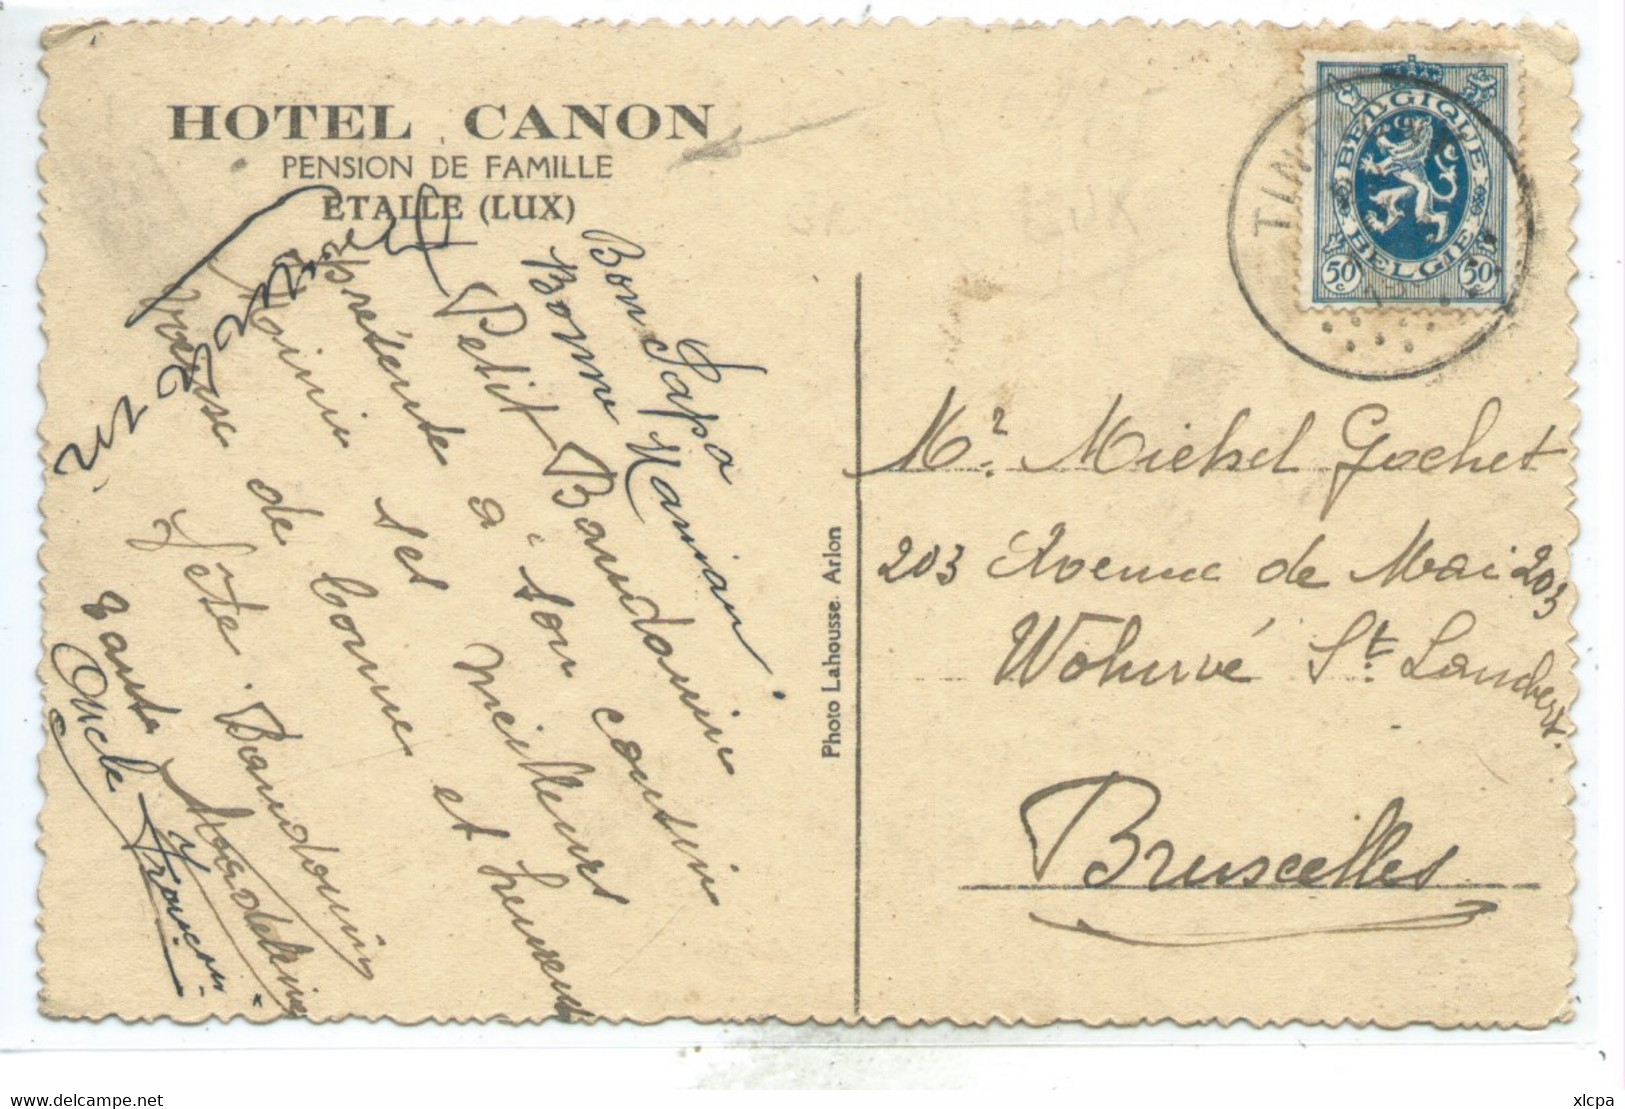 HOTEL CANON
PENSION DE FAMILLE
ETALLE (LUX)
Bon Papa
Bonne Maman
Petit Baudouin
présente à son cousin
ses meilleurs
de bonne et heureuse
fête. Baudouin
Tante Madeleine
Oncle
Photo Lahousse. Arlon
TIN
BELGIQUE
BELGIE
50c 50c
Mr. Michel Gochet
203 Avenue de Mai 203
Woluwé St. Lambert.
Bruxelles
delcampe.net
xlcpa